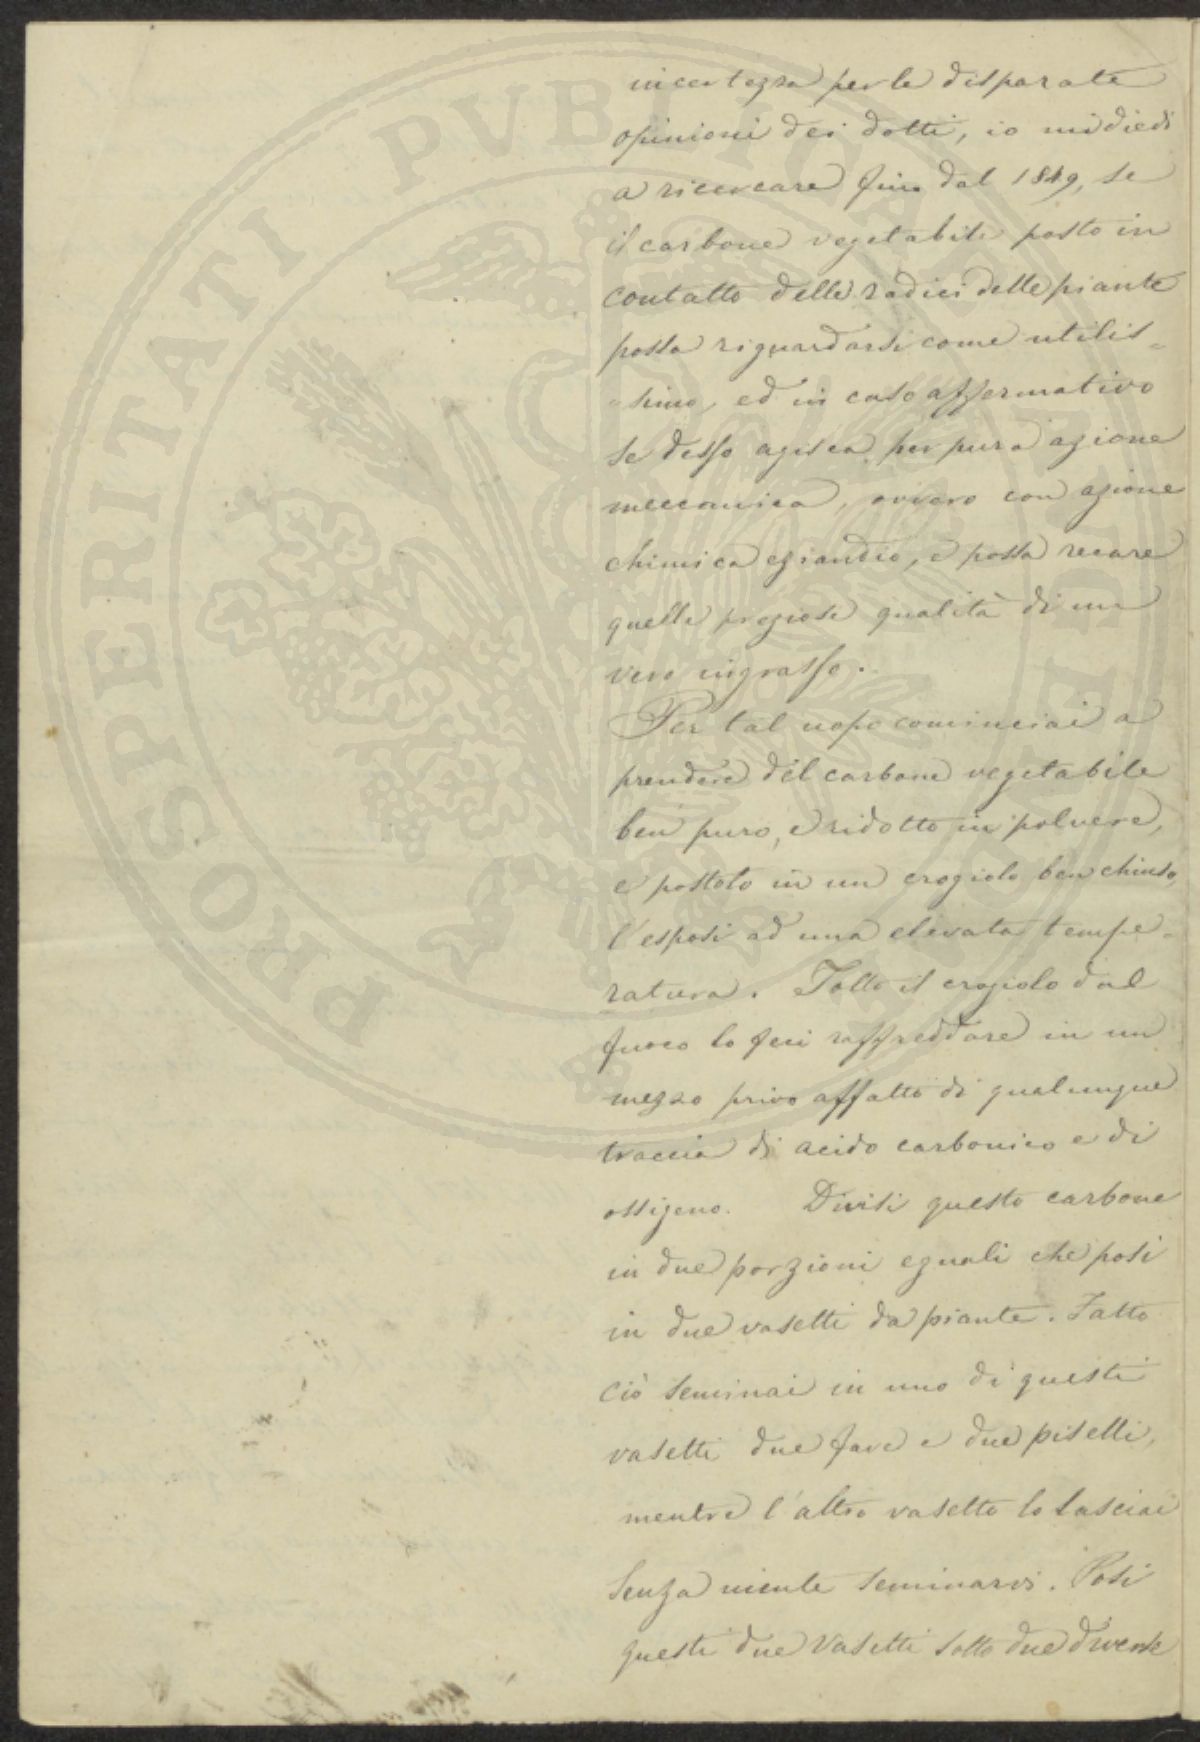 incertezza per le disparate
opinioni dei dotti, io mi diedi
a ricercare fino dal 1849, se
il carbone vegetabile posto in
contatto delle radici delle piante
possa riguardarsi come utilis-
-simo, ed in caso affermativo
se desso agisca per pura azione
meccanica, ovvero con azione
chimica eziandio, e possa recare
quelle preziose qualità di un
vero ingrasso.
Per tal uopo cominciai a
prendere del carbone vegetabile
ben puro, e ridotto in polvere,
e postolo in un crogiolo ben chiuso,
l'esposi ad una elevata tempe-
ratura. Tolto il crogiolo dal
fuoco lo feci raffreddare in un
mezzo privo affatto di qualunque
traccia di acido carbonico e di
ossigeno. Divisi questo carbone
in due porzioni eguali che posi
in due vasetti da piante. Fatto
ciò seminai in uno di questi
vasetti due fave e due piselli,
mentre l'altro vasetto lo lasciai
senza niente seminarvi. Posi
questi due vasetti sotto due diverse
PROSPERITATI PVBLICAE AVGENDAE